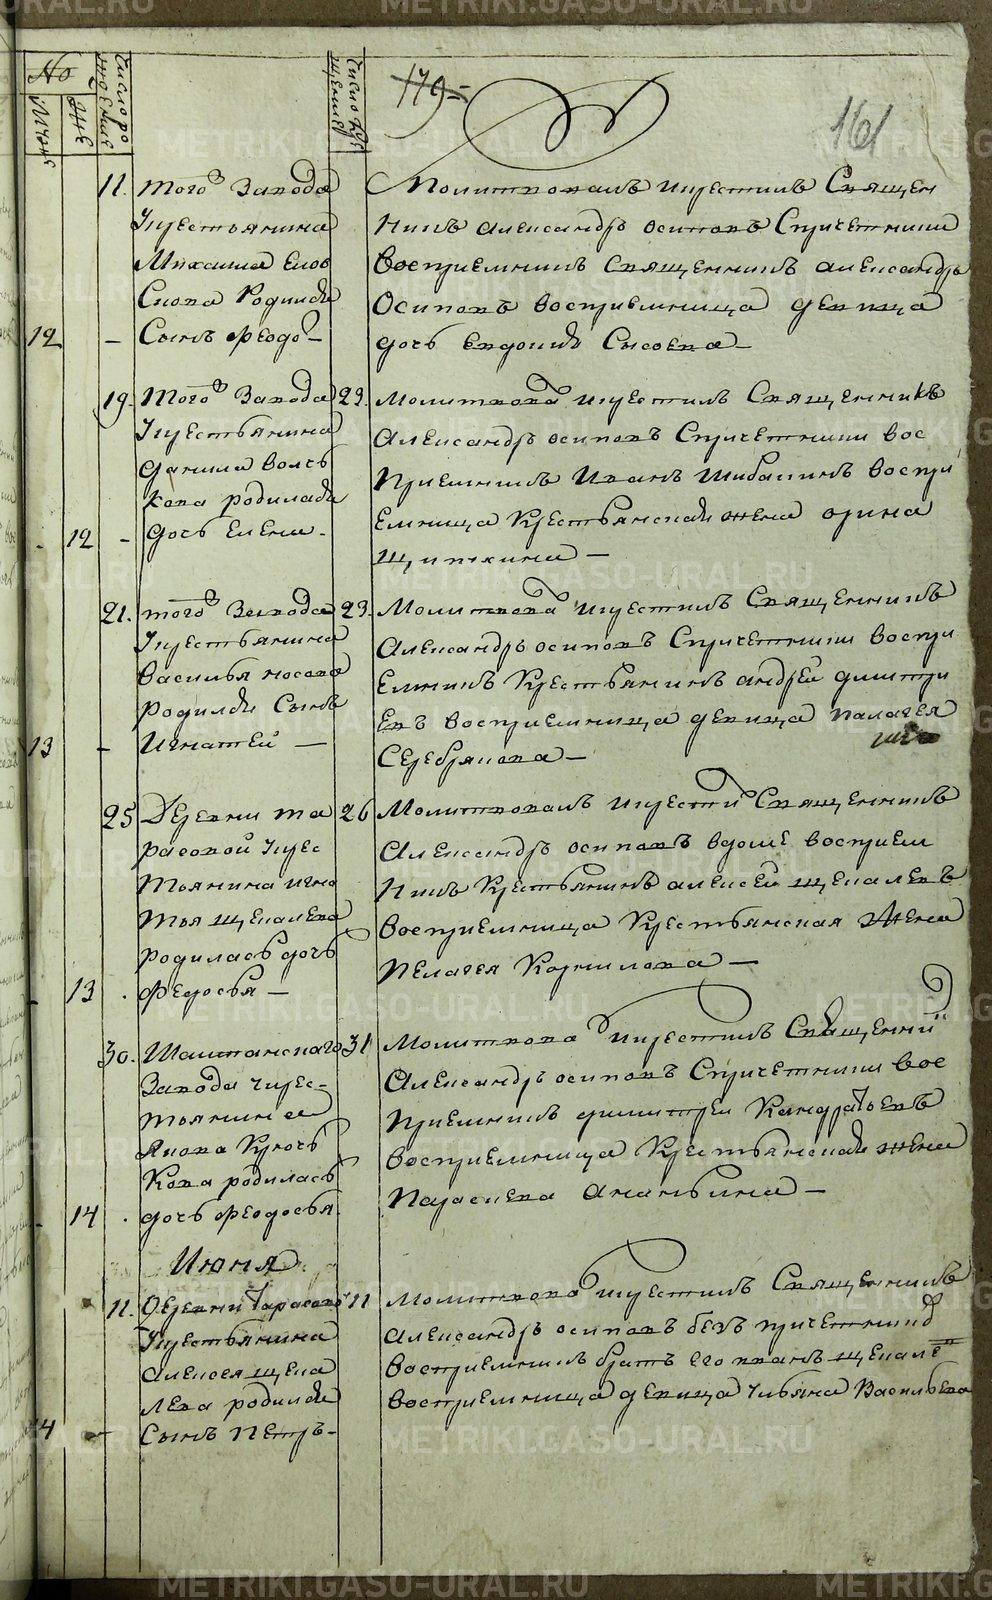 METRIKI.GASO-URAL.RU
№
Число ро
ждение
Число кре
щение
179
161
11. того Завода
Крестьянина
Михаила Елов
Скова Родилса
12 – Сынъ Феодо –
Молитвовалъ икрестилъ Священ
никъ Александръ осиповъ Спричетники
Восприемникъ Священникъ александръ
Осиповъ восприемница девица
дочь Евдокия Сысоева –
19. того Завода 23.
Крестьянина
данила волч
кова родиласа
12 – дочь Елена –
Молитвова икрестилъ Священникъ
Александръ осиповъ Спричетники вос
приемникъ Иванъ восприи
емница Крестьянская жена орина
Щипкина –
21. того Завода 23.
Крестьянина
Василья носова
родился Сынъ
13 – Игнатей –
Молитвова икрестилъ Священникъ
Александръ осиповъ Спричетники воспри
емникъ Крестьянинъ андрей дмитри
евъ восприемница девица палагея
Серебрякова –
25 Деревни та 26
расовой Крес
тьянина игна
тья щекалева
родиласъ дочь
13 . Федосья –
Молитвовалъ икрести Священникъ
Александръ осиповъ вдоме восприем
никъ Крестьянинъ алексей щекалевъ
восприемница Крестьянская жена
Пелагея Корнилова –
30. Шайтанскаго 31
Завода Крес-
тьянина
Якова Крюч
кова родиласъ
14 . дочь Феодосья
Молитвова икрестилъ Священни
Александръ осиповъ Спричетники вос
приемникъ димитреи Кандратьевъ
восприемница Крестьянская жена
Параскева Ананьина –
Июня
11. Деревни Тарасово 11
Крестьянина
Алексея щека
лева родилса
14 – Сынъ Петръ –
Молитвова икрестилъ Священникъ
Александръ осиповъ безъ причетник
восприемникъ братъ его иванъ щекале
восприемница девица ульяна Васильева